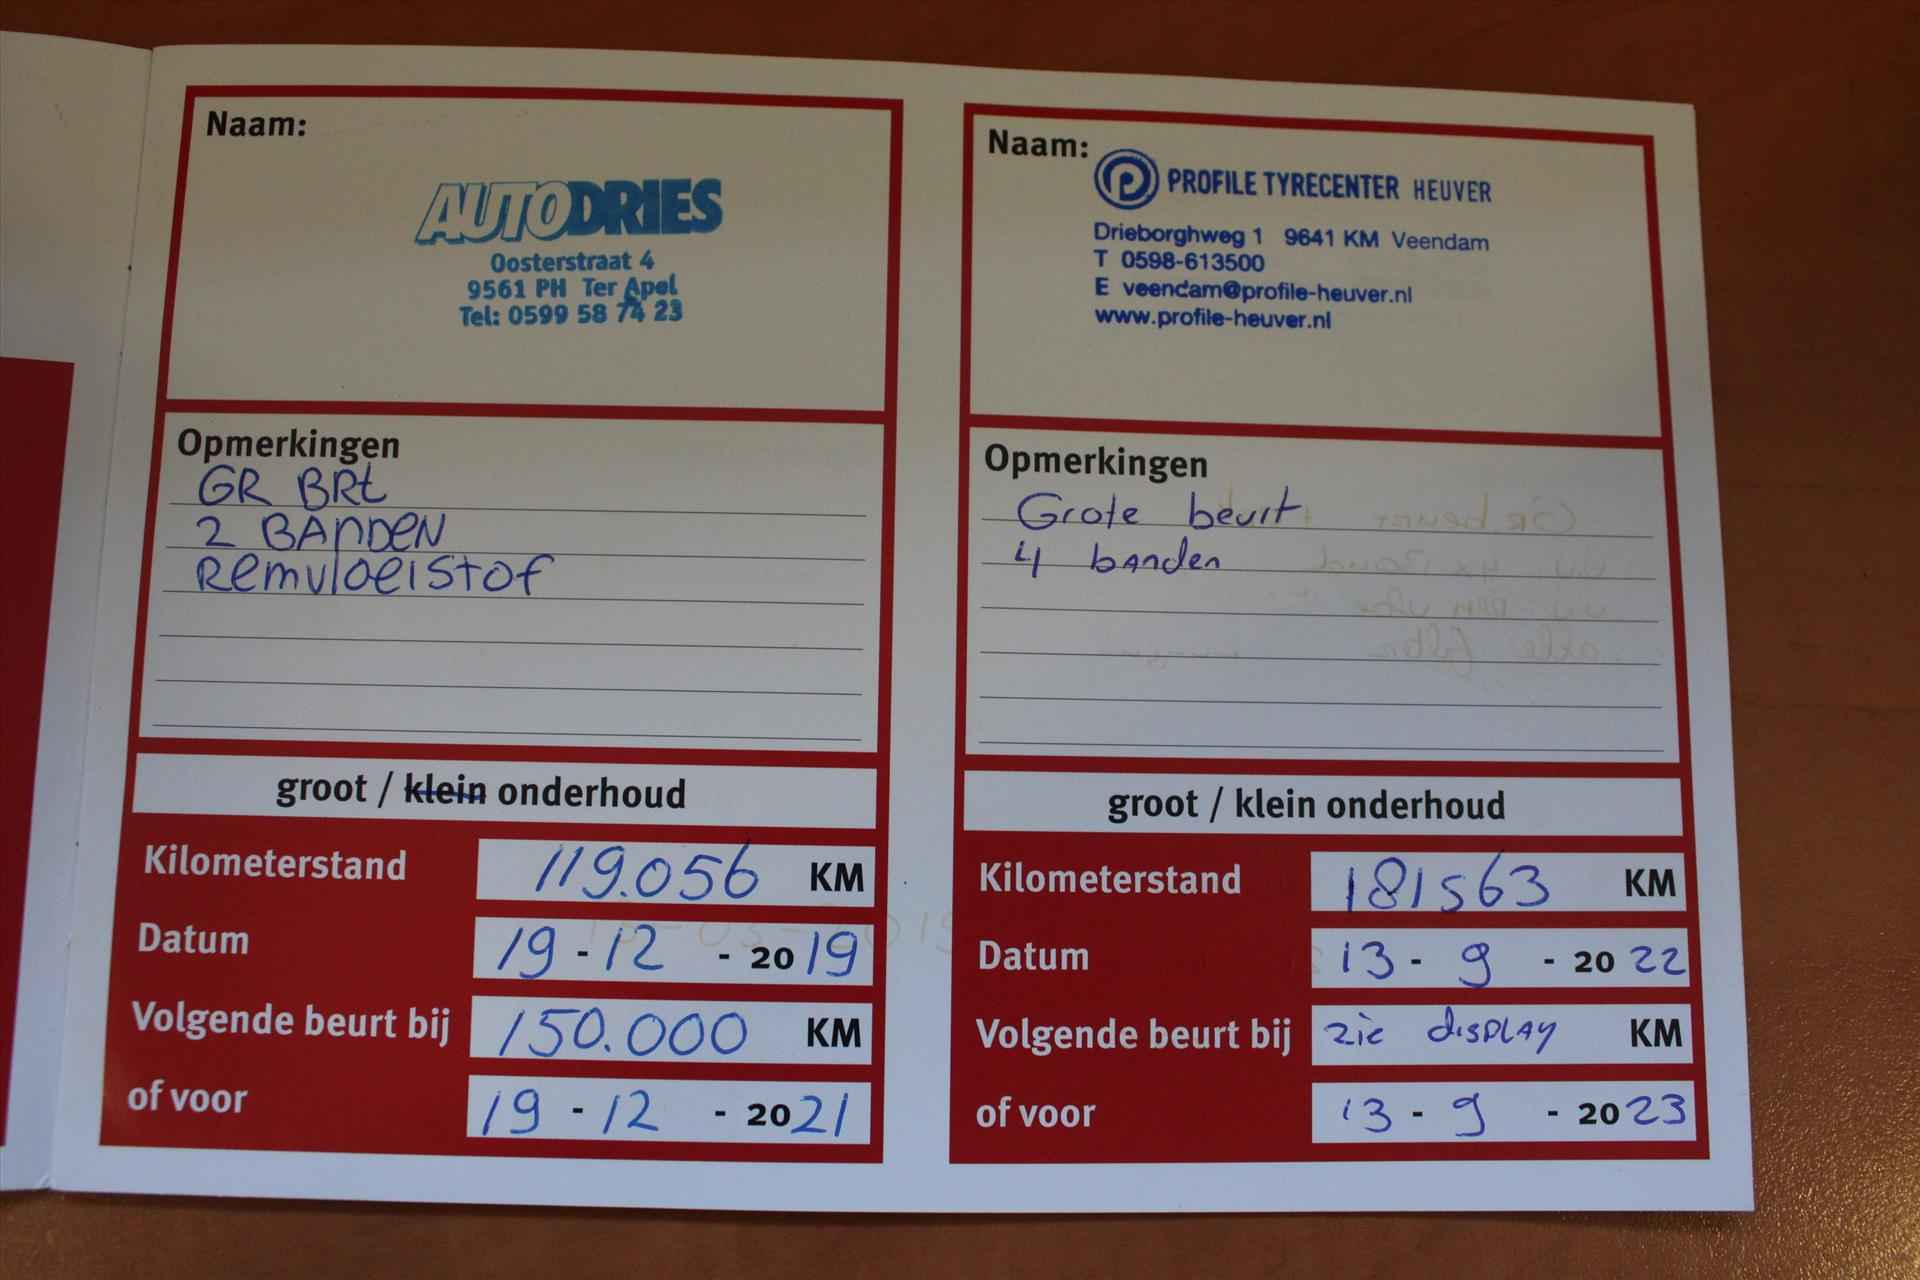 Naam:
AUTODRIES
Oosterstraat 4
9561 PH Ter Apel
Tel: 0599 58 74 23
Opmerkingen
GR BRt
2 BANDEN
Remvloeistof
groot / klein onderhoud
Kilometerstand 119.056 KM
Datum 19 - 12 - 2019
Volgende beurt bij 150.000 KM
of voor 19 - 12 - 2021
Naam:
PROFILE TYRECENTER HEUVER
Drieborghweg 1 9641 KM Veendam
T 0598-613500
E veendam@profile-heuver.nl
www.profile-heuver.nl
Opmerkingen
Grote beurt
4 banden
groot / klein onderhoud
Kilometerstand 181563 KM
Datum 13 - 9 - 2022
Volgende beurt bij zie display KM
of voor 13 - 9 - 2023